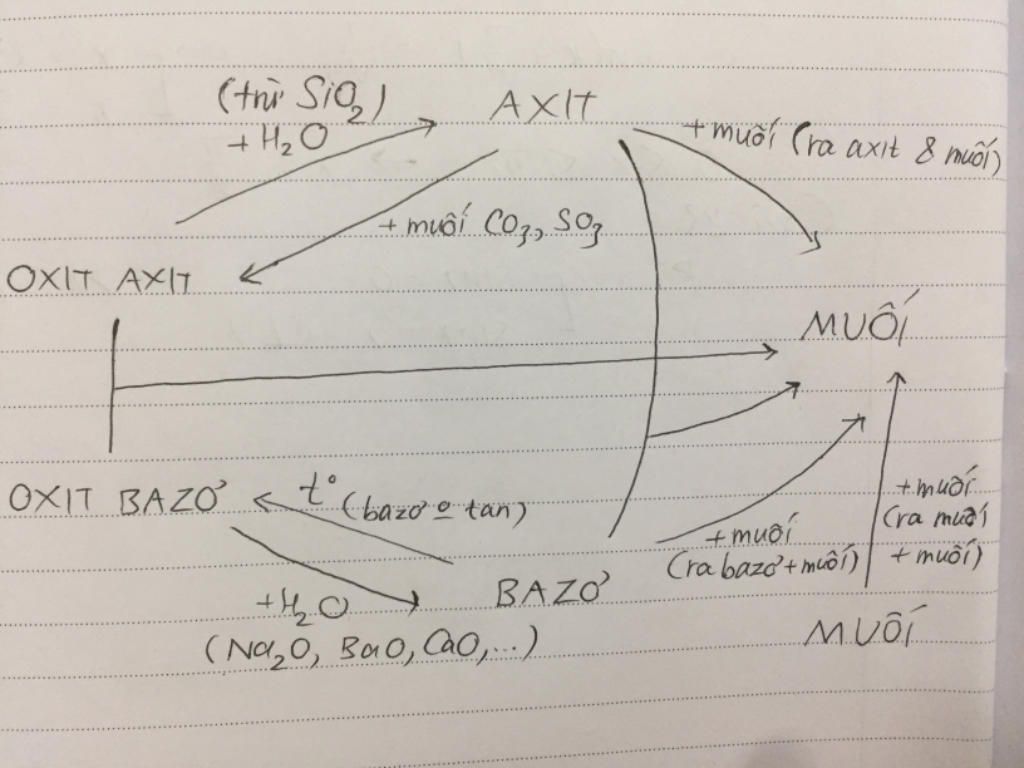 (trừ SiO2)
+ H2O
AXIT
+ muối (ra axit & muối)
+ muối CO3, SO3
OXIT AXIT
MUỐI
OXIT BAZƠ
t° (bazơ o tan)
+ muối
(ra bazơ + muối)
+ muối
(ra muối
+ muối)
BAZƠ
+H2O
(Na2O, BaO, CaO,...)
MUỐI